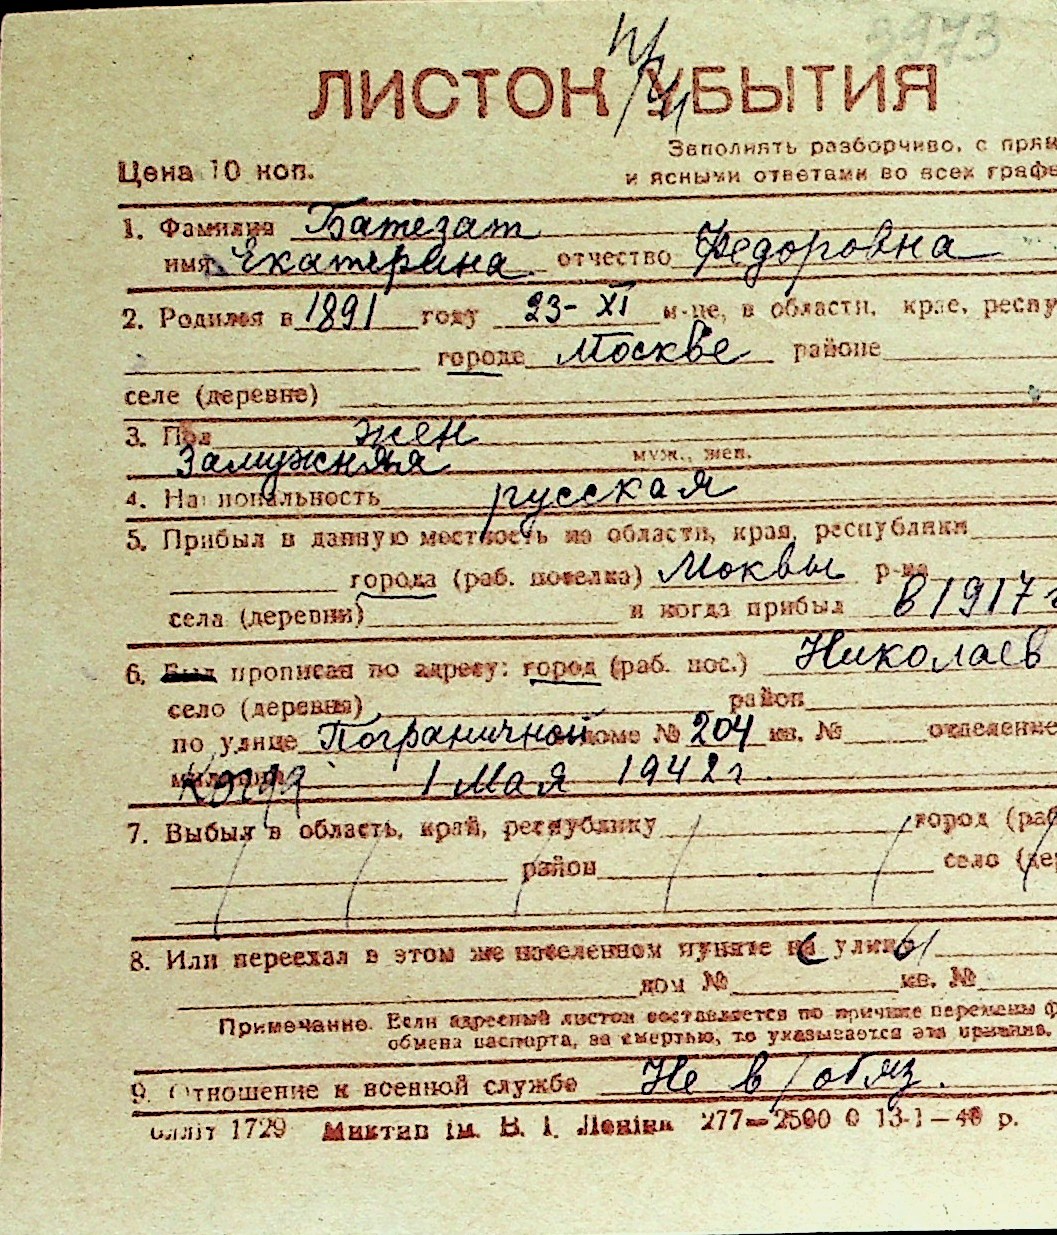 3973
ЛИСТОК УБЫТИЯ
Заполнять разборчиво, с прям
Цена 10 коп.
и ясными ответами во всех графа
1. Фамилия Батезат
имя Екатерина отчество Федоровна
2. Родился в 1891 году 23-XI м-це, в области, крае, респу
городе Москве районе
селе (деревне)
3. Пол жен
Замужняя муж., жен.
4. Национальность русская
5. Прибыл в данную местность из области, края, республики
города (раб. поселка) Моквы р-на
села (деревни) и когда прибыл в 1917 г
6. Был прописан по адресу: город (раб. пос.) Николаев
село (деревня) район
по улице Пограничной доме № 204 кв. № отделение
милиции Когда 1 Мая 1942 г.
7. Выбыл в область, край, республику город (раб
район село (дер
8. Или переехал в этом же населенном пункте на улицу
дом № кв. №
Примечание. Если адресный листок составляется по причине перемены ф
обмена паспорта, за смертью, то указывается эта причина.
9. Отношение к военной службе Не в/обяз.
Миктип ім. В. І. Леніна 277—2500 0 13-1—40 р.